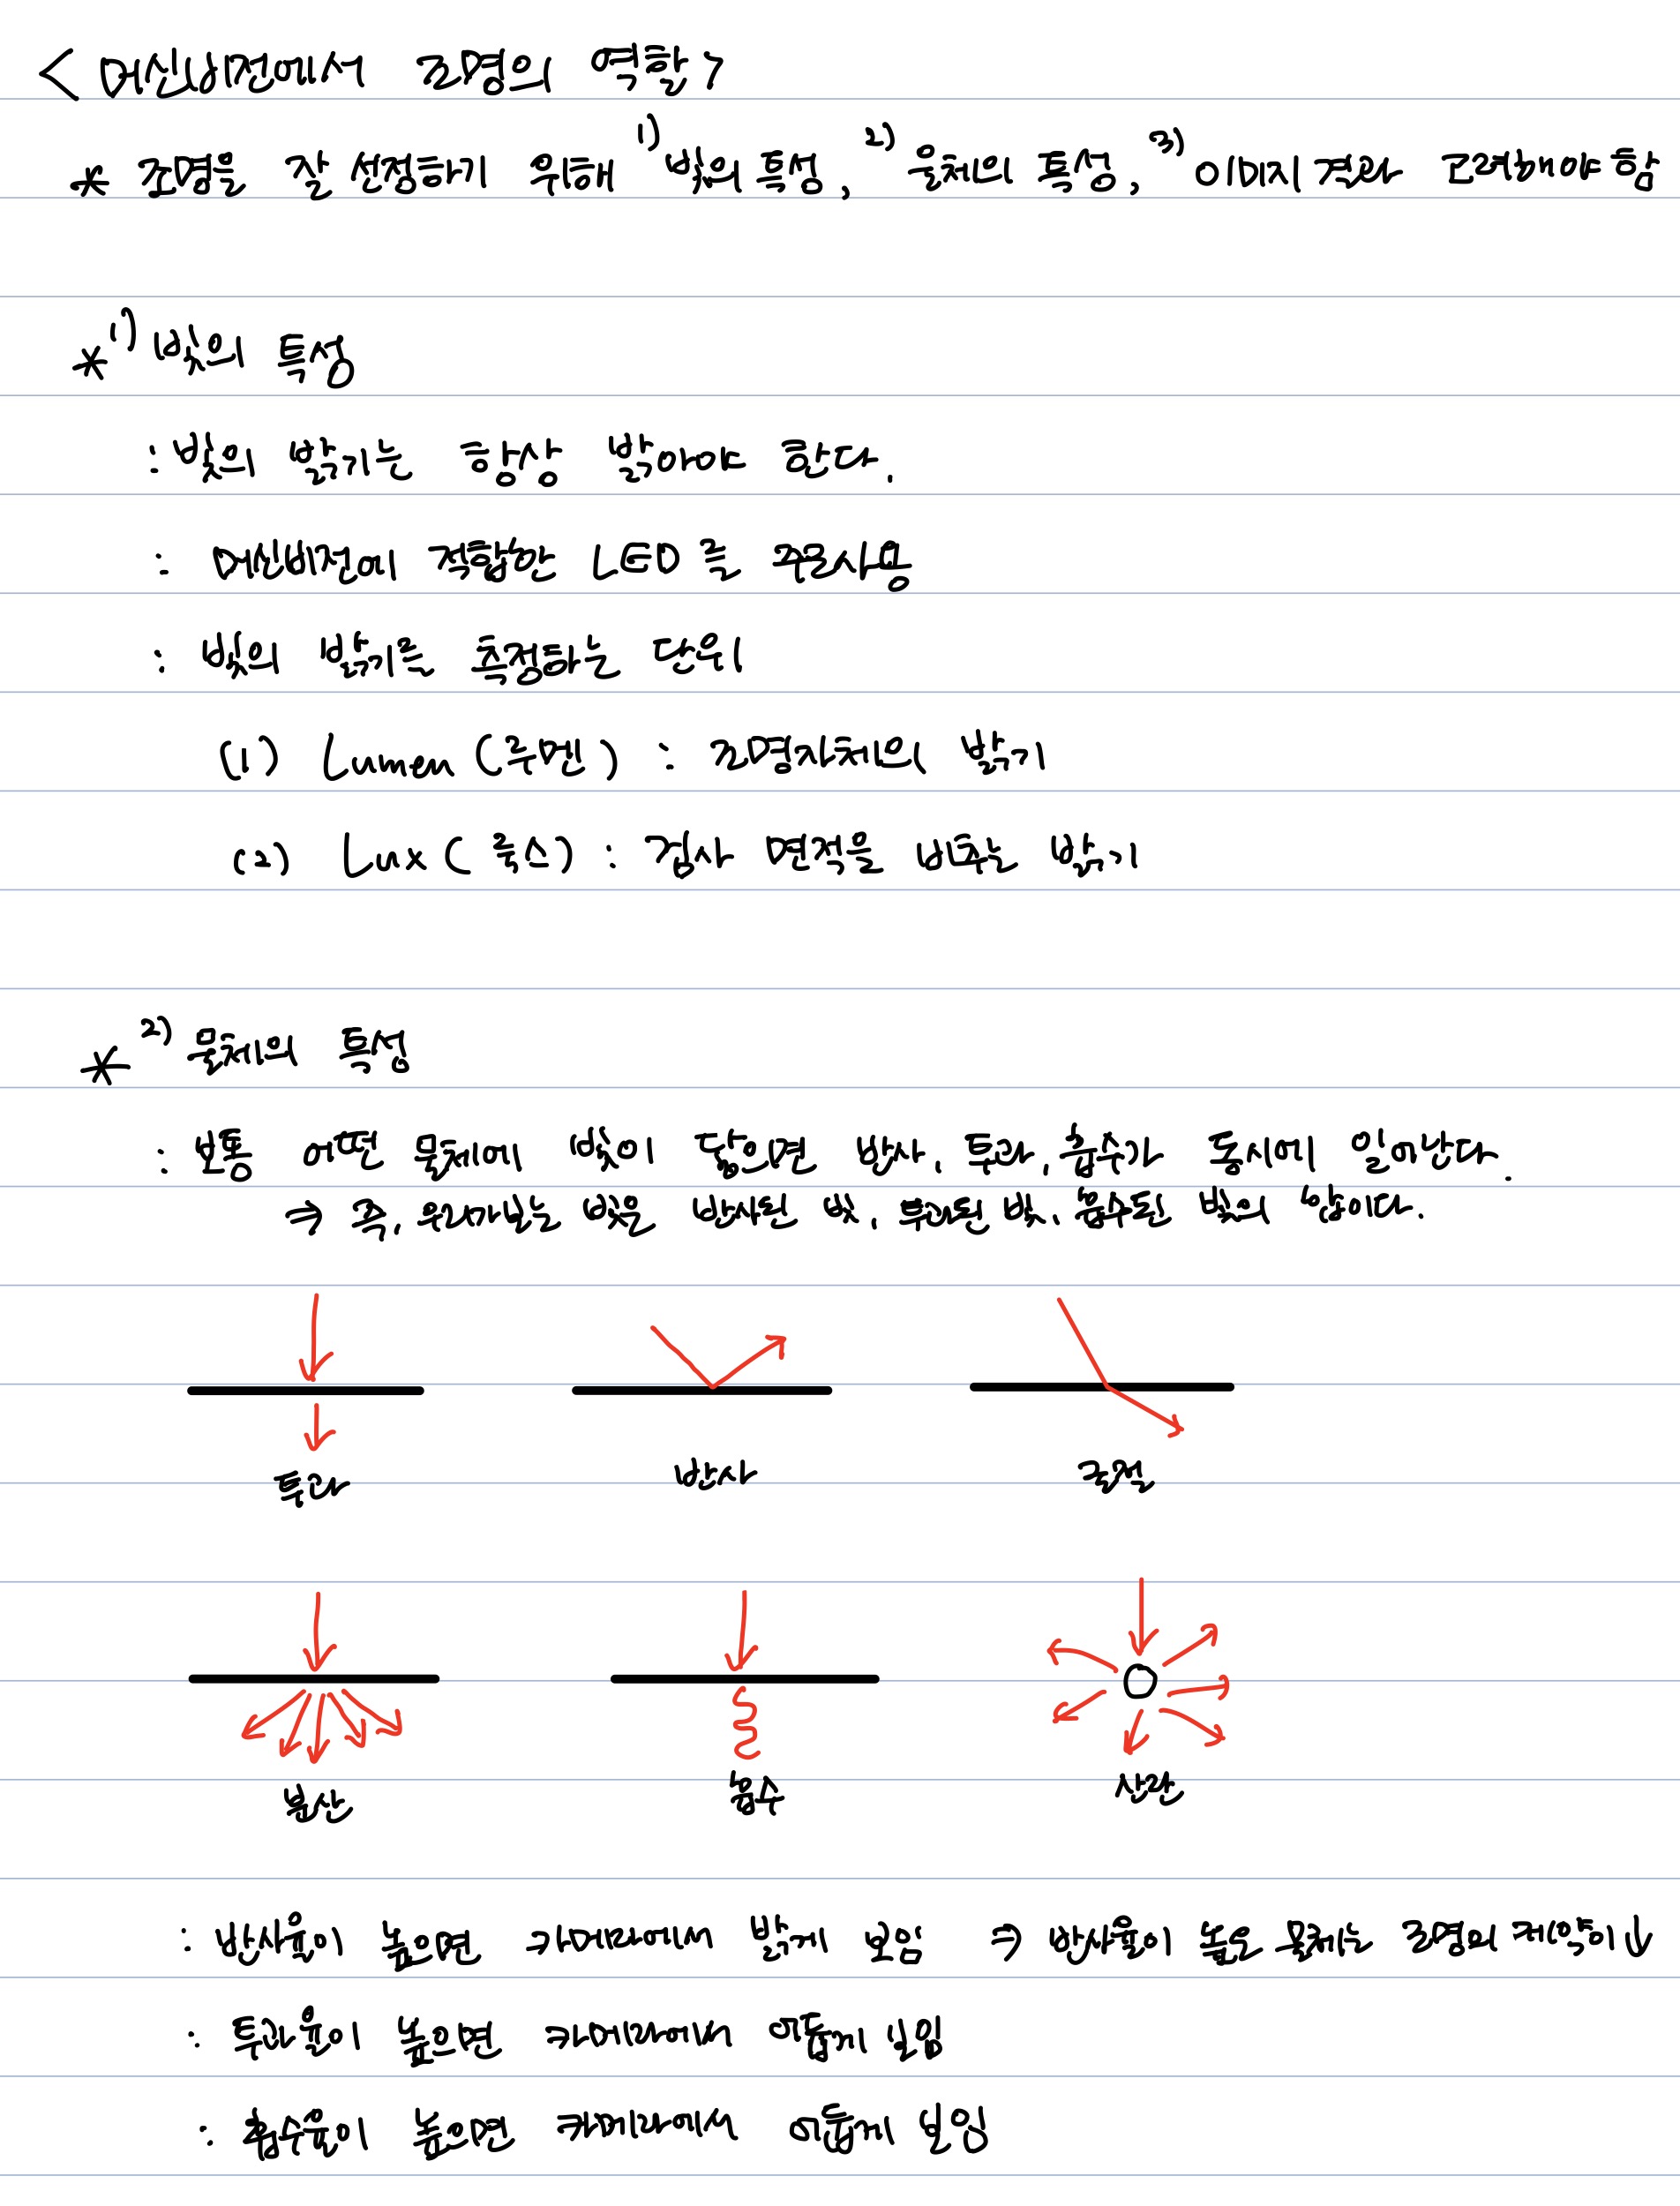 <머신비젼에서 조명의 역할>
* 조명을 잘 선정하기 위해 1) 빛의 특성, 2) 물체의 특성, 3) 이미지 결과 고려해야 함
* 1) 빛의 특성
: 빛의 밝기는 항상 밝아야 한다.
: 머신비젼에 적합한 LED를 주로 사용
: 빛의 밝기를 측정하는 단위
(1) Lumen (루멘) : 조명자체의 밝기
(2) Lux (룩스) : 검사 면적을 비추는 밝기
* 2) 물체의 특성
: 보통 어떤 물체에 빛이 닿으면 반사, 투과, 흡수가 동시에 일어난다.
⇒ 즉, 우리가 보는 빛은 반사된 빛, 투과된 빛, 흡수된 빛의 합이다.
투과 반사 굴절
분산 흡수 산란
: 반사율이 높으면 카메라에서 밝게 보임 ⇒ 반사율이 높은 물체는 조명의 제약이↓
: 투과율이 높으면 카메라에서 어둡게 보임
: 흡수율이 높으면 카메라에서 어둡게 보임